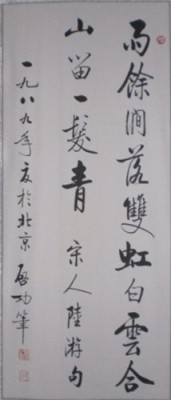 雨餘澗落雙虹白雲合
山留一髮青 宋人陸游句
一九八九年夏於北京 啟功筆